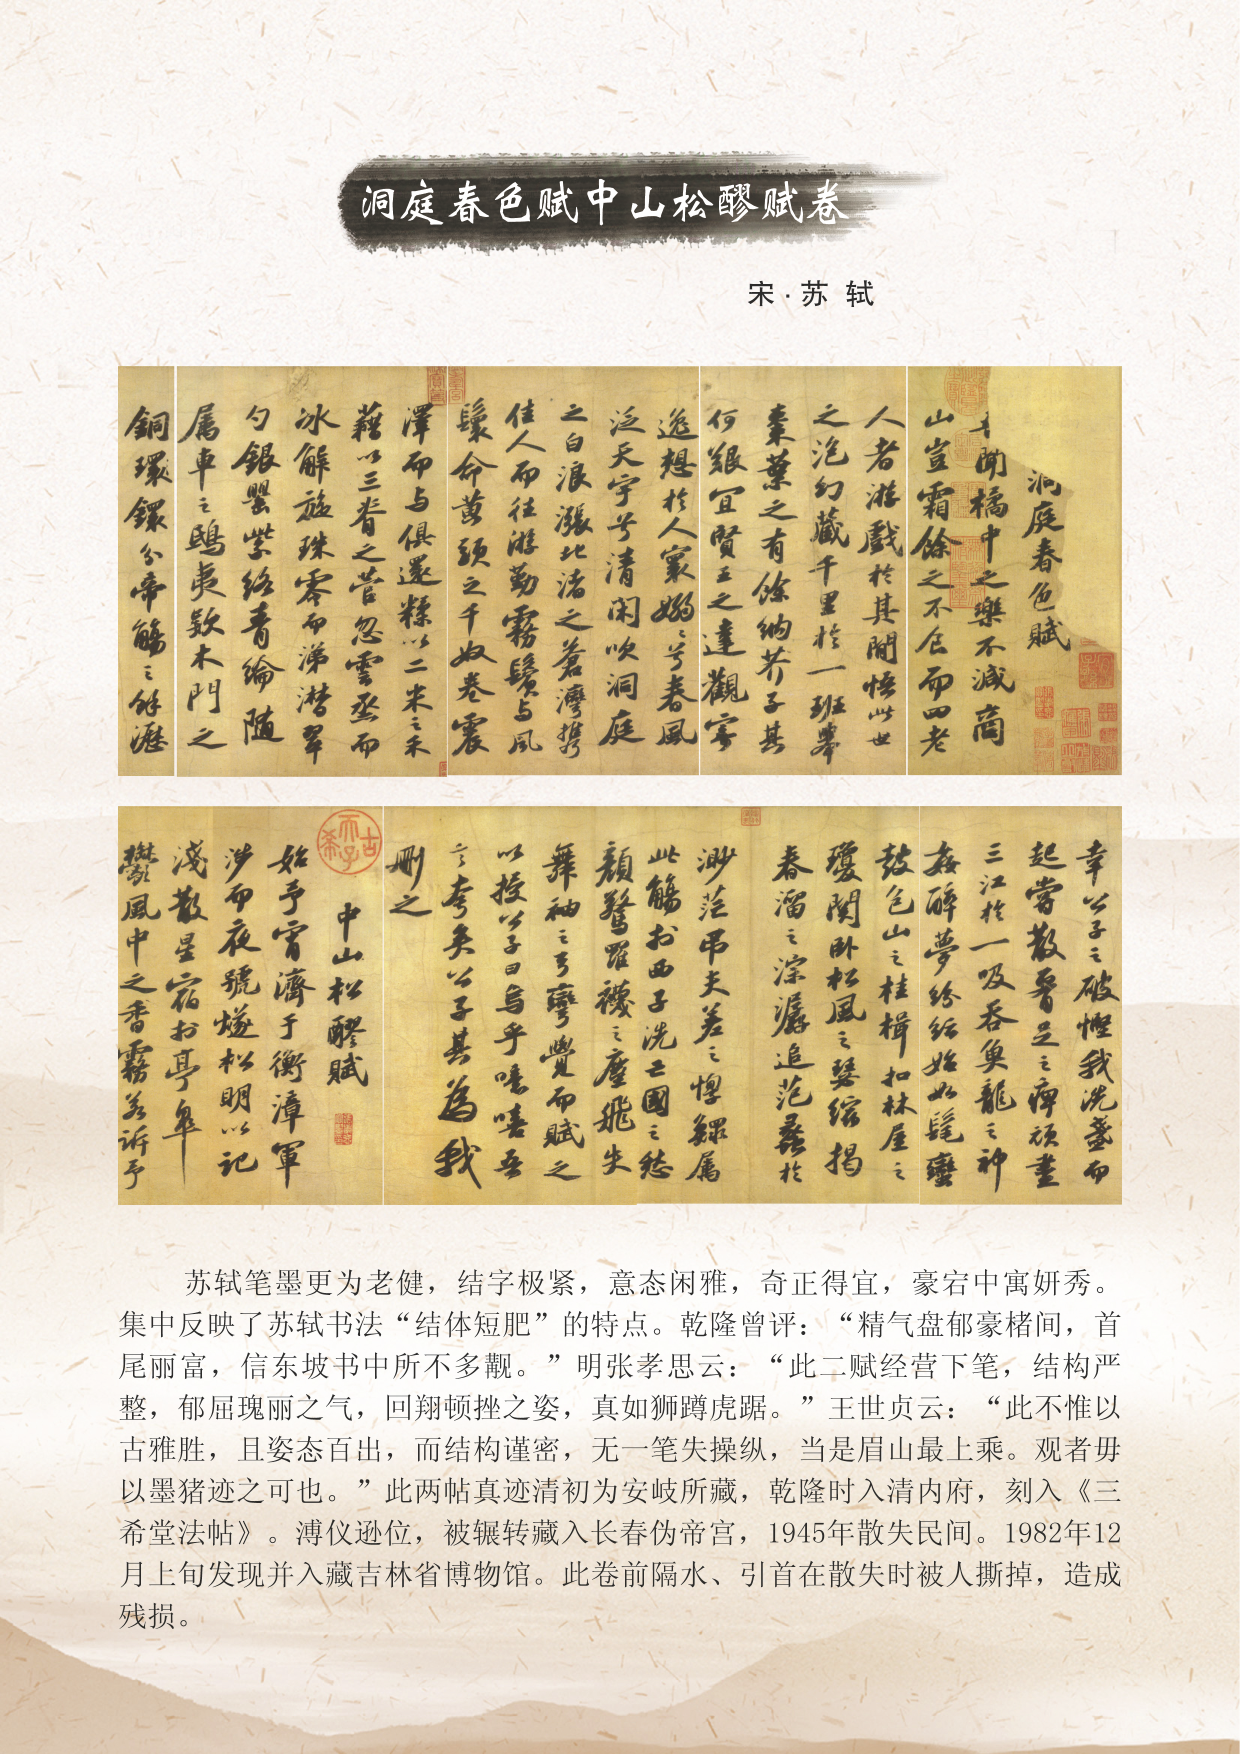 洞庭春色赋中山松醪赋卷
宋·苏 轼
洞庭春色賦
聞橘中之樂不減商
山豈霜餘之不食而四老
人者游戲於其間悟此世
之泡幻藏千里於一班舉
棗葉之有餘納芥子其
何艱宜賢王之達觀寄
逸想於人寰嫋〻兮春風
泛天宇兮清閑吹洞庭
之白浪漲北渚之蒼灣携
佳人而往游勤霧鬢与風
鬟命黄頭之千奴卷震
澤而与俱還糅以二米之禾
藉以三脊之菅忽雲烝而
冰解旋珠零而涕潸翠
勺銀罌紫絡青綸随
属車之鴟夷款木門之
銅環鐶分帝觴之餘瀝
幸公子之破慳我洗盞而
起嘗散腰足之痺頑盡
三江於一吸吞魚龍之神
姦醉夢紛紜始如髦蠻
鼓包山之桂楫扣林屋之
瓊関卧松風之瑟縮揭
春溜之淙潺追范蠡於
渺茫吊夫差之惸鰥属
此觴於西子洗亡國之愁
顔驚羅襪之塵飛失
舞袖之弓彎覺而賦之
以授公子曰烏乎噫嘻吾
言夸矣公子其為我
刪之
中山松醪賦
始予宵濟于衡漳軍
涉而夜號燧松明以記
淺散星宿於亭皐
鬱風中之香霧若訴予
苏轼笔墨更为老健，结字极紧，意态闲雅，奇正得宜，豪宕中寓妍秀。
集中反映了苏轼书法“结体短肥”的特点。乾隆曾评：“精气盘郁豪楮间，首
尾丽富，信东坡书中所不多觏。”明张孝思云：“此二赋经营下笔，结构严
整，郁屈瑰丽之气，回翔顿挫之姿，真如狮蹲虎踞。”王世贞云：“此不惟以
古雅胜，且姿态百出，而结构谨密，无一笔失操纵，当是眉山最上乘。观者毋
以墨猪迹之可也。”此两帖真迹清初为安岐所藏，乾隆时入清内府，刻入《三
希堂法帖》。溥仪逊位，被辗转藏入长春伪帝宫，1945年散失民间。1982年12
月上旬发现并入藏吉林省博物馆。此卷前隔水、引首在散失时被人撕掉，造成
残损。